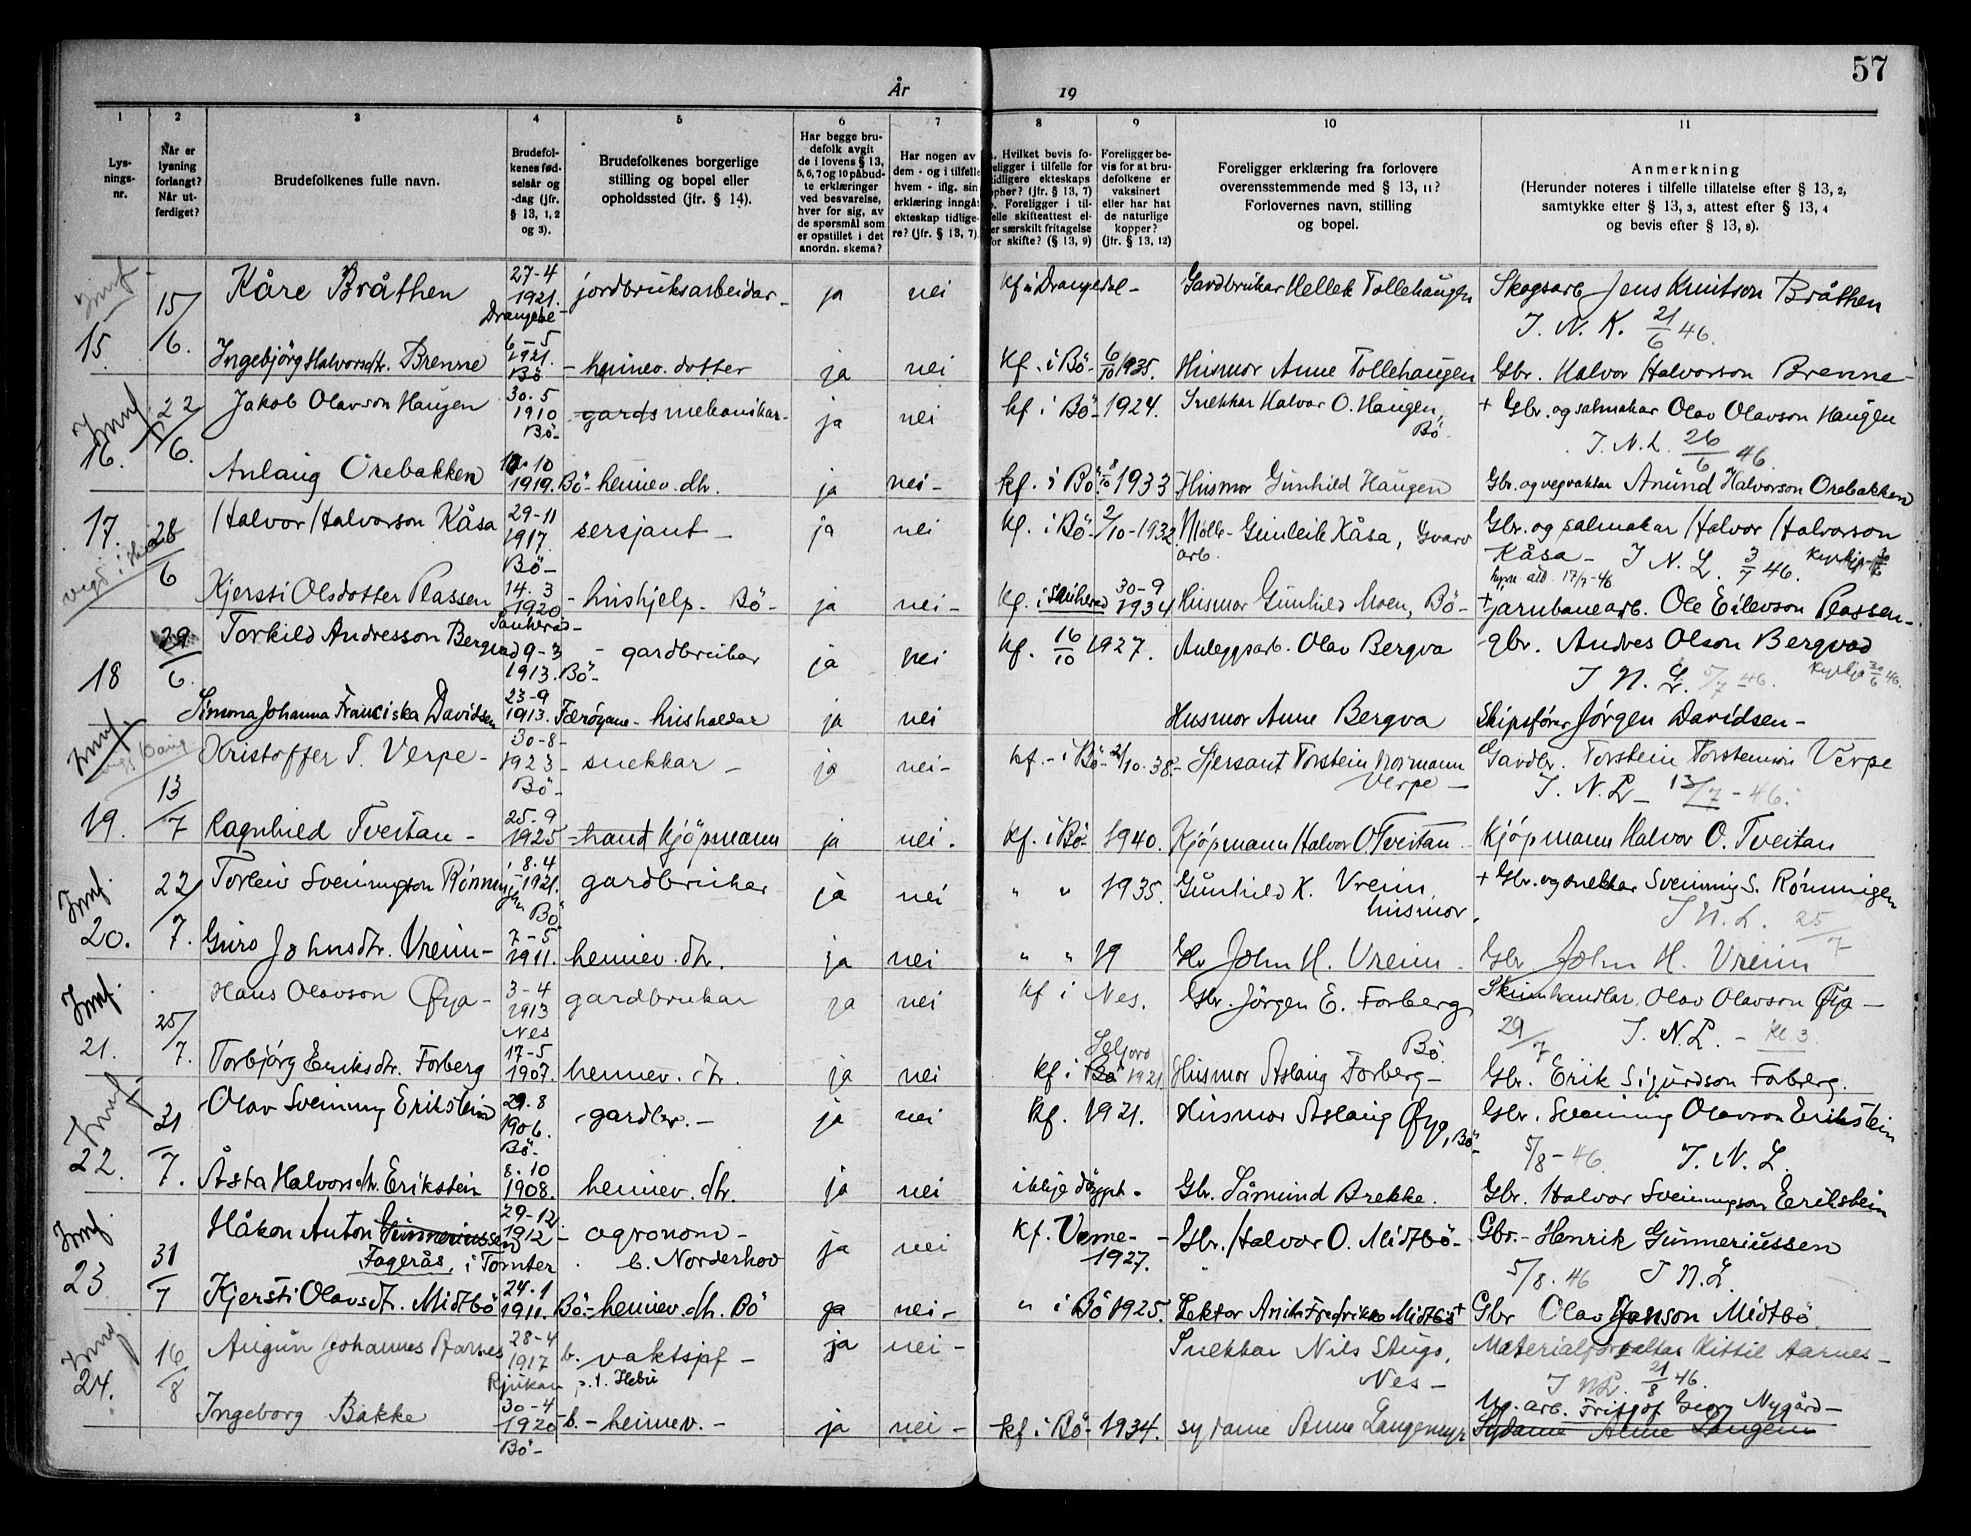 57
År
19
1 2 3 4 5 6 7 8 9 10 11
Lys-
nings-
nr.
Når er
lysning
forlangt?
Når ut-
ferdiget?
Brudefolkenes fulle navn.
Brudefol-
kenes fød-
selsår og
-dag (jfr.
§ 13, 1, 2
og 3).
Brudefolkenes borgerlige
stilling og bopel eller
opholdssted (jfr. § 14).
Har begge bru-
defolk avgit
de i lovens § 13,
5, 6, 7 og 10 påbud-
te erklæringer
ved besvarelse,
hver for sig, av
de spørsmål som
er opstillet i det
anordn. skema?
Har nogen av
dem - og i tilfelle
hvem - iflg. sin
erklæring inngåt
ekteskap tidlige-
re? (jfr. § 13, 7).
Hvilket bevis fo-
religger i tilfelle for
tidligere ekteskaps
ophør? (jfr. § 13, 7)
Foreligger i til-
felle skifteattest el-
er særskilt fritagelse
for skifte? (§ 13, 9)
Foreligger be-
vis for at bru-
defolkene er
vaksinert
eller har hat
de naturlige
kopper?
(jfr. § 13, 12)
Foreligger erklæring fra forlovere
overensstemmende med § 13, 11?
Forlovernes navn, stilling
og bopel.
Anmerkning
(Herunder noteres i tilfelle tillatelse efter § 13, 2,
samtykke efter § 13, 3, attest efter § 13, 4
og bevis efter § 13, 8).
15. 15/6. Kåre Bråthen 27-4 1921. Drangedal - jordbruksarbeidar - ja nei kf i Drangedal - Gardbrukar Hellek Tollehaugen Skogsarb. Jens Knutson Bråthen
J. N. K. 21/6 46.
Ingebjörg Halvorsdtr. Brenne 6-5 1921. Bö - heimev. dotter ja nei kf. i Bö - 6/10 1935. Husmor Anne Tollehaugen Gbr. Halvor Halvorson Brenne -
16. 22/6. Jakob Olavson Haugen 30.5 1910 Bö - gards mekanikar - ja nei kf i Bö - 1924. Snekkar Halvor O. Haugen, Bö + Gbr. og salmakar Olav Olavson Haugen
J. N. L. 26/6 46.
Anlaug Orebakken 10 1919. Bö - heimev. dtr. ja nei - kf. i Bö 8/10 1933 Husmor Gunhild Haugen Gbr. og vegvaktar Anund Halvorson Orebakken
17. 28/6 Halvor Halvorson Kåsa 29-11 1917. Bö - sersjant - ja nei kf. i Bö - 2/10 - 1932. Mölle-arb. Gunleik Kåsa, Gvarv Gbr. og salmakar Halvor Halvorson
Kåsa - J N. L. 3/7 46. Kyrkja 30/6
Kjersti Olsdotter Plassen 14. 3 1920 Sauherad - hushjelp - Bö - ja nei - kf. i Sauherad 30-9 1934 Husmor Gunhild Moen, Bö - + jarnbanearb. Ole Eilevson Plassen -
18 29/6. Torkild Andresson Bergvad 9-3 1913. Bö - gardbrukar ja nei kf. 16/10 1927. Anleggsarb. Olav Bergva gbr. Andres Olson Bergvad
J N. L. 5/7 46. Kyrkja 30/6 46.
Simona Johanna Franciska Davidsen 23-9 1913. Færöyane - husholdar ja nei Husmor Anne Bergva Skipsförer Jørgen Davidsen -
19. 13/7 Kristoffer T. Verpe - 30-8- 1923 - Bö - snekkar - ja nei - kf. - i Bö - 2/10. 38 - Sjersant Torstein Normann Verpe - Gardbr. Torstein Torsteinson Verpe
J. N. L - 13/7 - 46.
Ragnhild Tveitan - 25. 9 1925 - kjöpmann ja nei. kf. i Bö 1940. Kjöpmann Halvor O Tveitan Kjöpmann Halvor O. Tveitan
20. 22/7. Torleiv Sveinungson Rönningen 8. 4 1921. Bö gardbrukar ja nei " " 1935. Gunhild K. Vreim, husmor, + Gbr. og snekkar Sveinung S. Rönningen
J N. L. 25/7
Guro Johnsdtr. Vreim - 7-5 1911. heimev. dtr. ja nei " " 19 John H. Vreim. Gbr John H. Vreim
21. 25/7. Hans Olavson Øya - 3-4 1913 Nes gardbrukar ja nei kf i Nes. Gbr. Jörgen E. Forberg Bö. Skinnhandlar. Olav Olavson Øya -
29/7 J. N. L. - Kl 3.
Torbjörg Eriksdtr. Forberg 17-5 1907. heimev. dtr. ja nei kf i Seljord Bö 1921 Husmor Aslaug Forberg - Gbr. Erik Sigurdson Foberg.
22. 31/7. Olav Sveinung Erikstein 29. 8 1906. Bö - gardbr. - ja nei kf. 1921. Husmor Aslaug Øya, Bö - Gbr. Sveinung Olavson Erikstein
5/8 - 46. J. N. L.
Åsta Halvorsdtr. Erikstein 8. 10 1908. heimev. dtr. ja nei ikkje döypt. Gbr. Såmund Brekke. Gbr. Halvor Sveinungson Eerikstein
23 31/7 Håkon Anton Gunneriussen Fagerås, i Tomter 29-12. 1912 - agronom - b. Norderhov ja nei kf. Verne- 1927. Gbr. Halvor O. Midtbö - Gbr. - Henrik Gunneriussen
5/8. 46 J N. L.
Kjersti Olavsdtr. Midtbö 24. 1 1911. Bö - heimev. dtr. Bö ja nei - " i Bö 1925. Lektor Fredrikke Midtbö + Gbr Olav Janson Midtbö.
24. 16/8 Augun Johannes Aarnes 28-4 1917 Rjukan b. vaktsjef - p.t. ja nei - Snekkar Nils Stugo, Nes - Materialforvaltar Kittil Aarnes -
J N L. 21/8 46.
Ingeborg Bakke 30-4 1920 Bö - b. - heimev. - ja nei - kf. i Bö - 1934. sydame Anne Langemyr arb. Fritjof Nygård -
Sydame Anne Langem